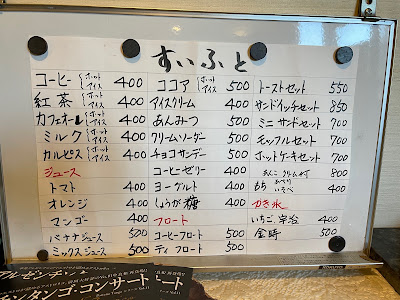 すいふと
コーヒー ホット アイス 400
紅茶 ホット アイス 400
カフェオーレ ホット アイス 400
ミルク ホット アイス 400
カルピス ホット アイス 400
ジュース
トマト 400
オレンジ 400
マンゴー 400
バナナジュース 500
ミックスジュース 500
ココア ホット アイス 500
アイスクリーム 400
あんみつ 500
クリームソーダー 500
チョコサンデー 500
コーヒーゼリー 400
ヨーグルト 400
しょうが糖 400
フロート
コーヒーフロート 500
ティフロート 500
トーストセット 550
サンドイッチセット 850
ミニサンドセット 700
モッフルセット 700
ホットケーキセット 700
あんこ クリーム付 800
もち あべり いそべ 400
かき氷
いちご 宇治 400
金時 500
タンゴ・コンサート